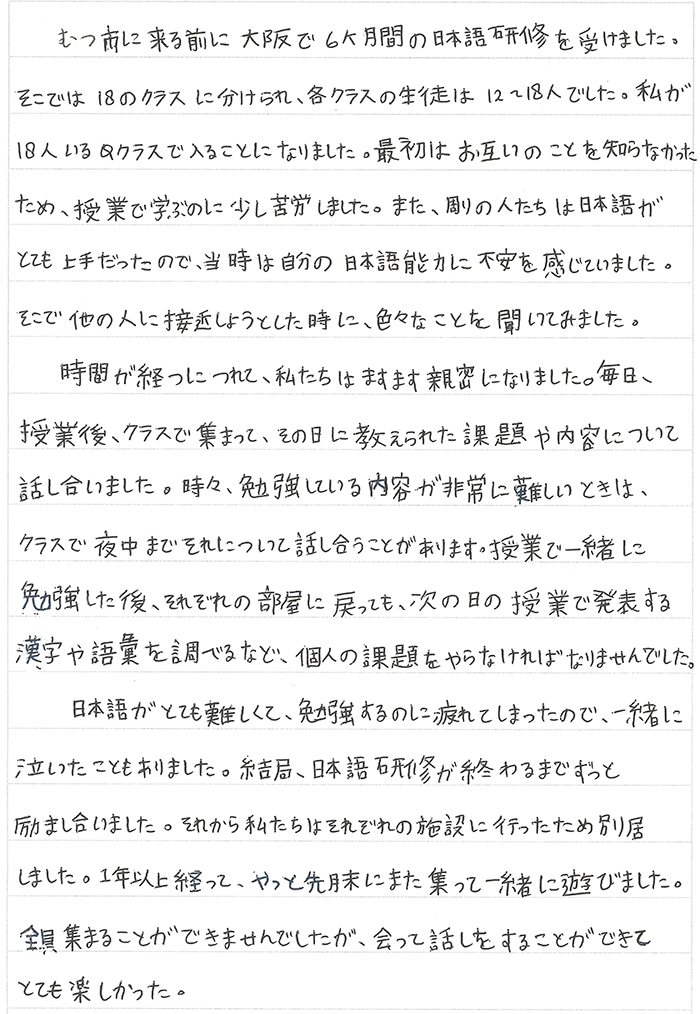 むつ市に来る前に大阪で6ヶ月間の日本語研修を受けました。
そこでは18のクラスに分けられ、各クラスの生徒は12~18人でした。私が
18人いるQクラスで入ることになりました。最初はお互いのことを知らなかった
ため、授業で学ぶのに少し苦労しました。また、周りの人たちは日本語が
とても上手だったので、当時は自分の日本語能力に不安を感じていました。
そこで他の人に接近しようとした時に、色々なことを聞いてみました。
時間が経つにつれて、私たちはますます親密になりました。毎日、
授業後、クラスで集まって、その日に教えられた課題や内容について
話し合いました。時々、勉強している内容が非常に難しいときは、
クラスで夜中までそれについて話し合うことがあります。授業で一緒に
勉強した後、それぞれの部屋に戻っても、次の日の授業で発表する
漢字や語彙を調べるなど、個人の課題をやらなければなりませんでした。
日本語がとても難しくて、勉強するのに疲れてしまったので、一緒に
泣いたこともありました。結局、日本語研修が終わるまでずっと
励まし合いました。それから私たちはそれぞれの施設に行ったため別居
しました。1年以上経って、やっと先月末にまた集って一緒に遊びました。
全員集まることができませんでしたが、会って話しをすることができて
とても楽しかった。